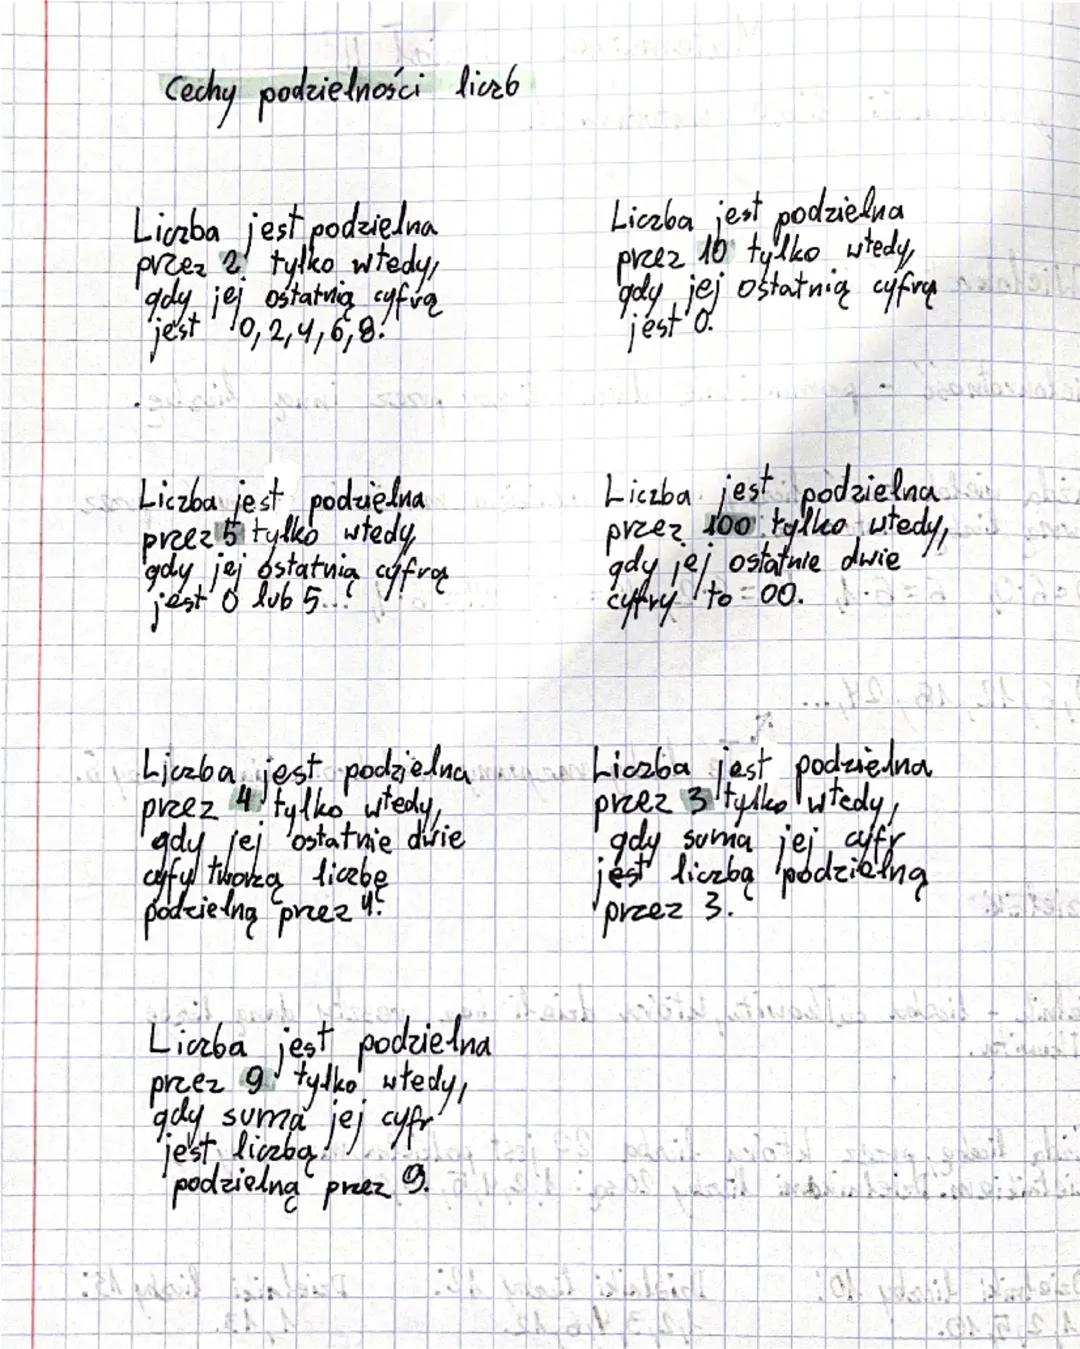 Cechy podzielności liczb
Liczba jest podzielna
przez 2 tylko wtedy,
gdy jej ostatnią cyfrą
jest 0, 2, 4, 6, 8.
Liczba jest podzielna
przez 10 tylko wtedy,
gdy jej ostatnią cyfrą
jest 0.
Liczba jest podzielna
przez 5 tylko wtedy,
gdy jej ostatnią cyfrą
jest 0 lub 5.
Liczba jest podzielna
przez 100 tylko wtedy,
gdy jej ostatnie dwie
cyfry to 00.
Liczba jest podzielna
przez 4 tylko wtedy,
gdy jej ostatnie dwie
cyfy tworzą liczbę
podzielną przez 4.
Liczba jest podzielna
przez 3 tylko wtedy,
gdy suma jej cyfr
jest liczbą podzielną
przez 3.
Liczba jest podzielna
przez 9 tylko wtedy,
gdy suma jej cyfr
jest liczbą
podzielną przez 9.